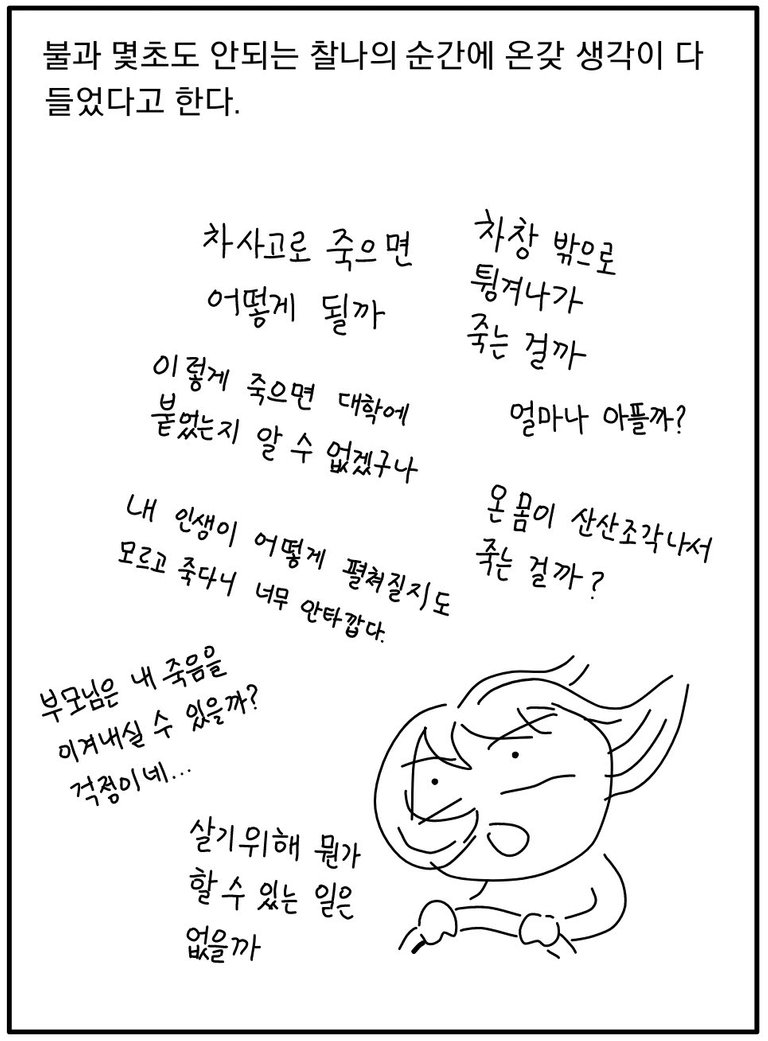 불과 몇초도 안되는 찰나의 순간에 온갖 생각이 다
들었다고 한다.
차사고로 죽으면
어떻게 될까
차창 밖으로
튕겨나가
죽는 걸까
이렇게 죽으면 대학에
붙었는지 알 수 없겠구나
얼마나 아플까?
내 인생이 어떻게 펼쳐질지도
모르고 죽다니 너무 안타깝다.
온몸이 산산조각나서
죽는 걸까?
부모님은 내 죽음을
이겨내실 수 있을까?
걱정이네...
살기위해 뭔가
할 수 있는 일은
없을까